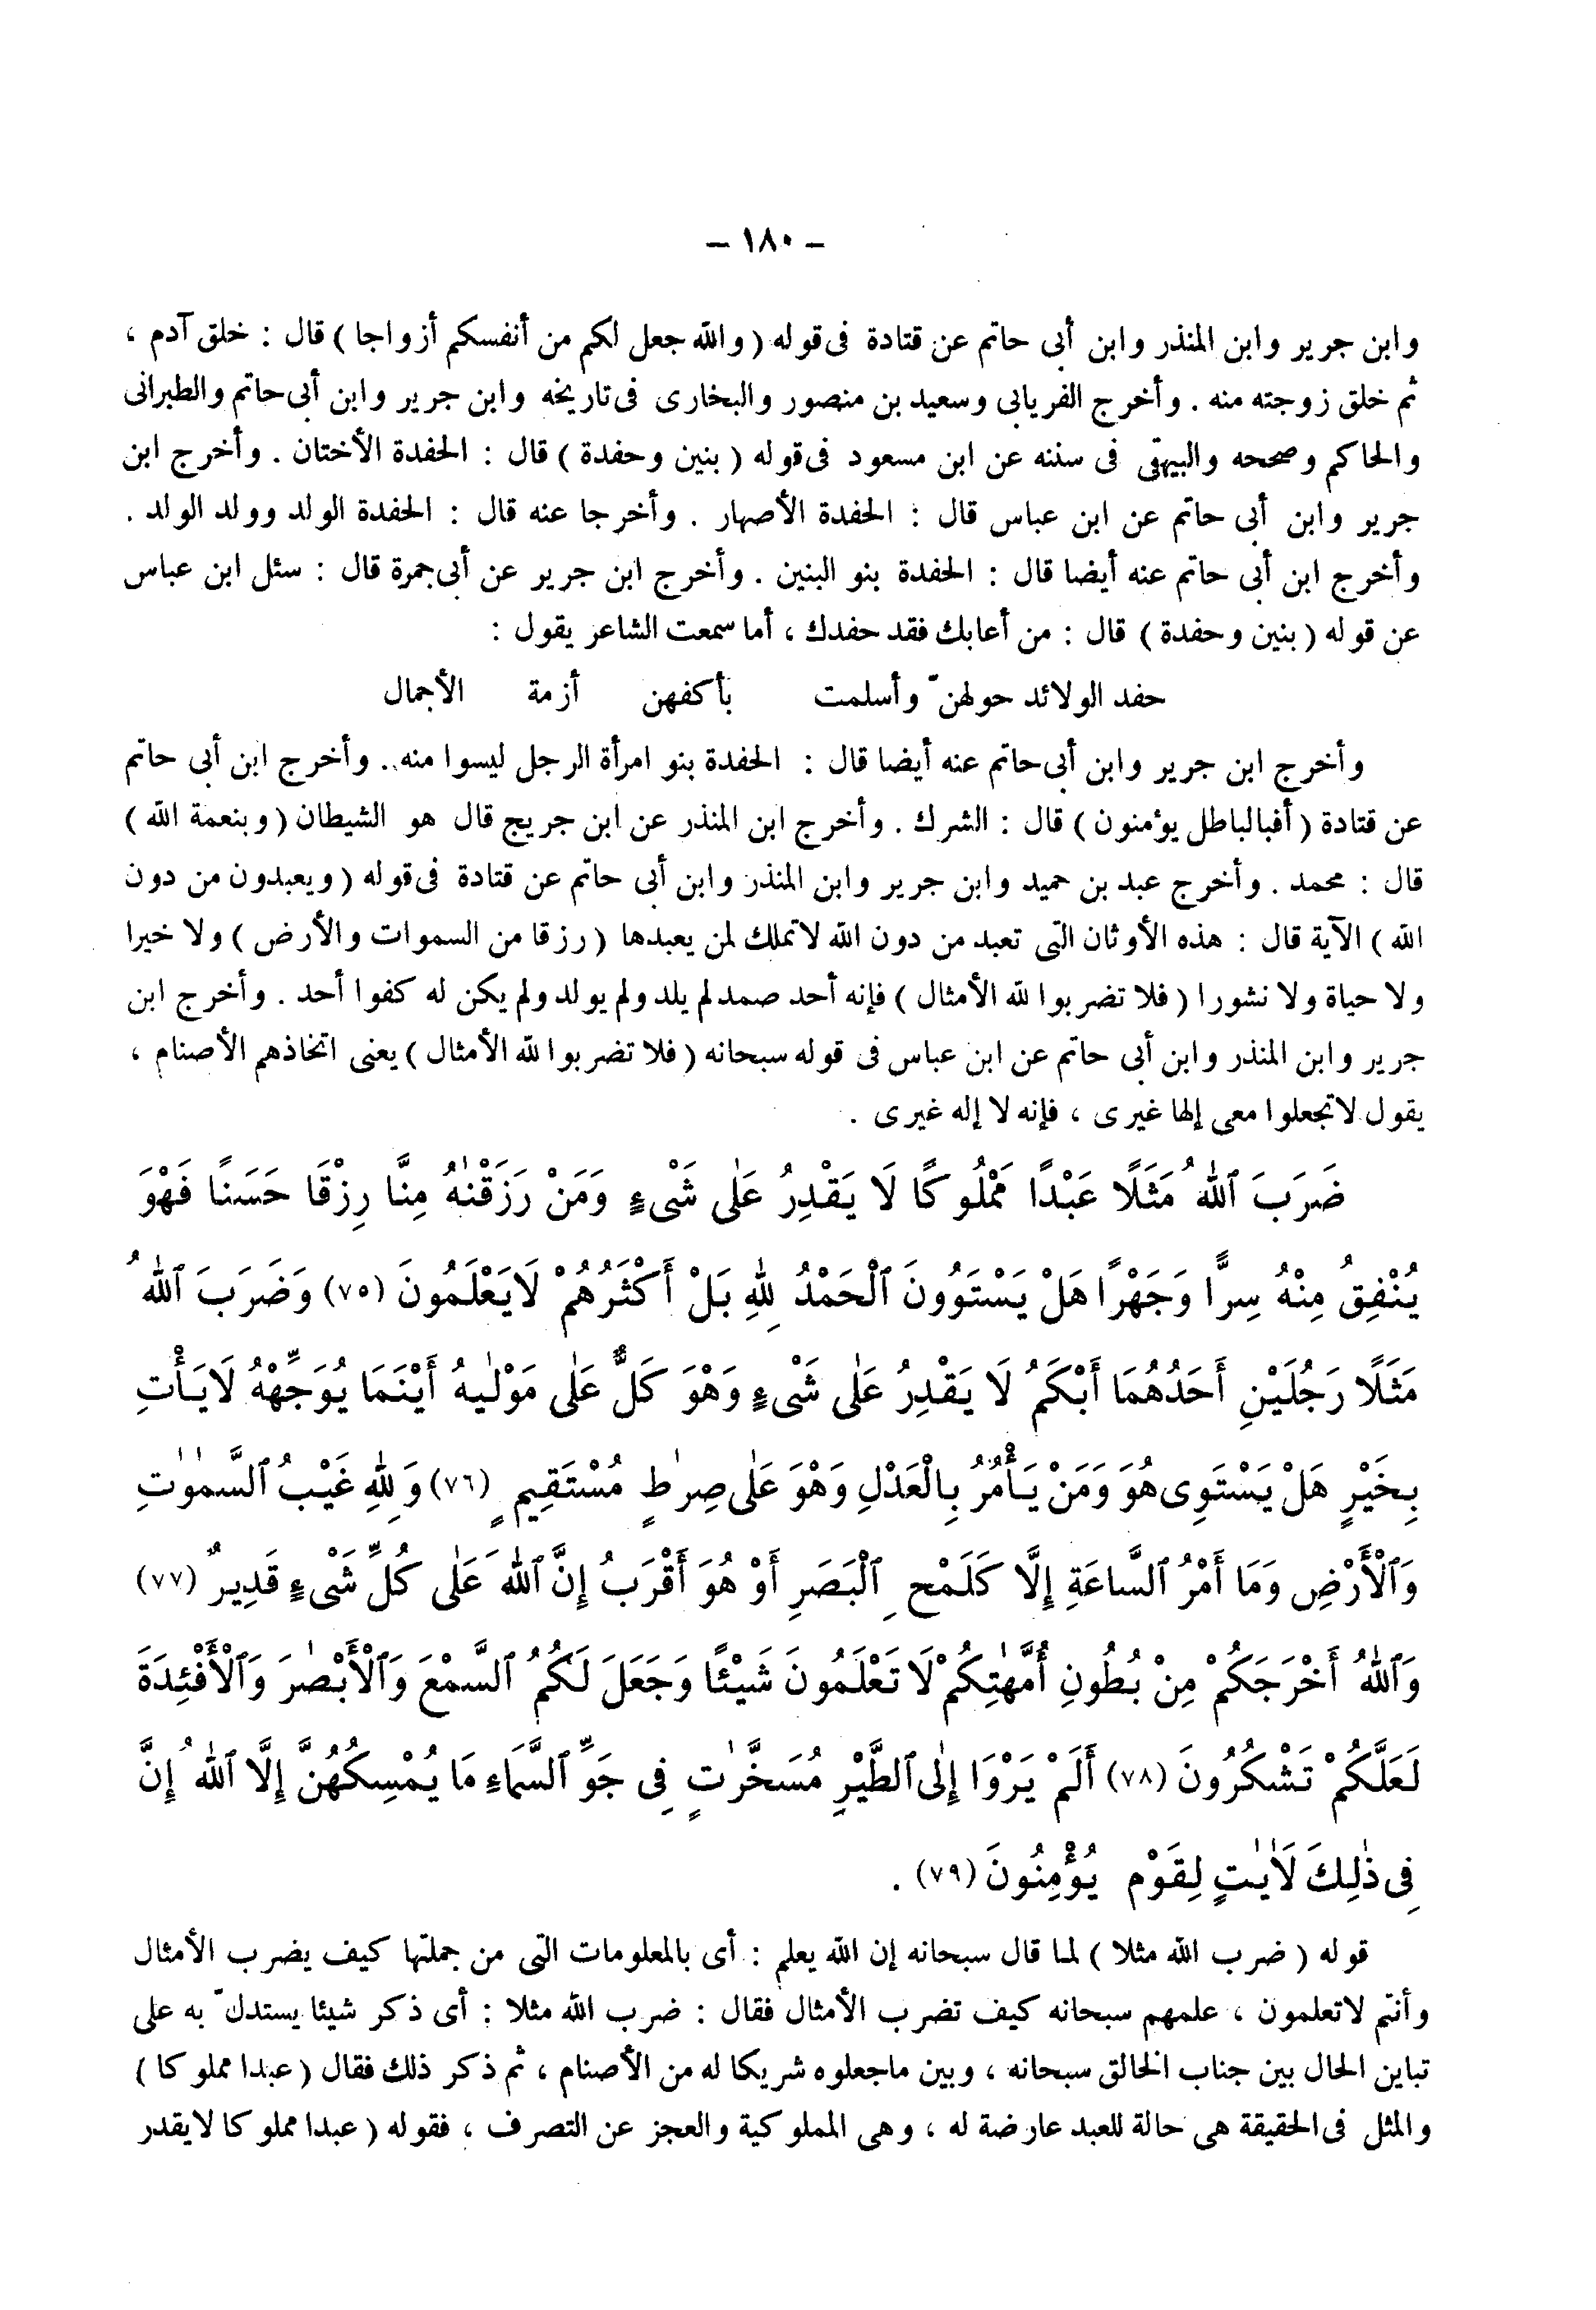 – ١٨٠ –
وابن جرير وابن المنذر وابن أبى حاتم عن قتادة فى قوله ( والله جعل لكم من أنفسكم أزواجا ) قال : خلق آدم ،
ثم خلق زوجته منه . وأخرج الفريابى وسعيد بن منصور والبخارى فى تاريخه وابن جرير وابن أبى حاتم والطبرانى
والحاكم وصححه والبيهقى فى سننه عن ابن مسعود فى قوله ( بنين وحفدة ) قال : الحفدة الأختان . وأخرج ابن
جرير وابن أبى حاتم عن ابن عباس قال : الحفدة الأصهار . وأخرجا عنه قال : الحفدة الولد وولد الولد .
وأخرج ابن أبى حاتم عنه أيضا قال : الحفدة بنو البنين . وأخرج ابن جرير عن أبى جمرة قال : سئل ابن عباس
عن قوله ( بنين وحفدة ) قال : من أعابك فقد حفدك ، أما سمعت الشاعر يقول :
حفد الولائد حولهنّ وأسلمت بأكفهن أزمة الأجمال
وأخرج ابن جرير وابن أبى حاتم عنه أيضا قال : الحفدة بنو امرأة الرجل ليسوا منه . وأخرج ابن أبى حاتم
عن قتادة ( أفبالباطل يؤمنون ) قال : الشرك . وأخرج ابن المنذر عن ابن جريج قال هو الشيطان ( وبنعمة الله )
قال : محمد . وأخرج عبد بن حميد وابن جرير وابن المنذر وابن أبى حاتم عن قتادة فى قوله ( ويعبدون من دون
الله ) الآية قال : هذه الأوثان التى تعبد من دون الله لاتملك لمن يعبدها ( رزقا من السموات والأرض ) ولا خيرا
ولا حياة ولا نشورا ( فلا تضربوا لله الأمثال ) فإنه أحد صمد لم يلد ولم يولد ولم يكن له كفوا أحد . وأخرج ابن
جرير وابن المنذر وابن أبى حاتم عن ابن عباس فى قوله سبحانه ( فلا تضربوا لله الأمثال ) يعنى اتخاذهم الأصنام ،
يقول لاتجعلوا معى إلها غيرى ، فإنه لا إله غيرى .
ضَرَبَ ٱللهُ مَثَلًا عَبْدًا مَمْلُوكًا لَا يَقْدِرُ عَلٰى شَىْءٍ وَمَنْ رَزَقْنٰهُ مِنَّا رِزْقًا حَسَنًا فَهْوَ
يُنْفِقُ مِنْهُ سِرًّا وَجَهْرًا هَلْ يَسْتَوُونَ ٱلْحَمْدُ لِلّٰهِ بَلْ أَكْثَرُهُمْ لَايَعْلَمُونَ (٧٥) وَضَرَبَ ٱللهُ
مَثَلًا رَجُلَيْنِ أَحَدُهُمَا أَبْكَمُ لَا يَقْدِرُ عَلٰى شَىْءٍ وَهْوَ كَلٌّ عَلٰى مَوْلٰيهُ أَيْنَمَا يُوَجِّهْهُ لَايَأْتِ
بِخَيْرٍ هَلْ يَسْتَوِى هُوَ وَمَنْ يَأْمُرُ بِالْعَدْلِ وَهْوَ عَلٰى صِرٰطٍ مُسْتَقِيمٍ (٧٦) وَلِلّٰهِ غَيْبُ ٱلسَّمٰوٰتِ
وَٱلْأَرْضِ وَمَا أَمْرُ ٱلسَّاعَةِ إِلَّا كَلَمْحِ ٱلْبَصَرِ أَوْ هُوَ أَقْرَبُ إِنَّ ٱللهَ عَلٰى كُلِّ شَىْءٍ قَدِيرٌ (٧٧)
وَٱللهُ أَخْرَجَكُمْ مِنْ بُطُونِ أُمَّهٰتِكُمْ لَا تَعْلَمُونَ شَيْئًا وَجَعَلَ لَكُمُ ٱلسَّمْعَ وَٱلْأَبْصٰرَ وَٱلْأَفْئِدَةَ
لَعَلَّكُمْ تَشْكُرُونَ (٧٨) أَلَمْ يَرَوْا إِلٰى ٱلطَّيْرِ مُسَخَّرٰتٍ فِى جَوِّ ٱلسَّمَاءِ مَا يُمْسِكُهُنَّ إِلَّا ٱللهُ إِنَّ
فِى ذٰلِكَ لَاٰيٰتٍ لِقَوْمٍ يُؤْمِنُونَ (٧٩) .
قوله ( ضرب الله مثلا ) لما قال سبحانه إن الله يعلم : أى بالمعلومات التى من جملتها كيف يضرب الأمثال
وأنتم لاتعلمون ، علمهم سبحانه كيف تضرب الأمثال فقال : ضرب الله مثلا : أى ذكر شيئا يستدلّ به على
تباين الحال بين جناب الخالق سبحانه ، وبين ماجعلوه شريكا له من الأصنام ، ثم ذكر ذلك فقال ( عبدا مملوكا )
والمثل فى الحقيقة هى حالة للعبد عارضة له ، وهى المملوكية والعجز عن التصرف ، فقوله ( عبدا مملوكا لايقدر